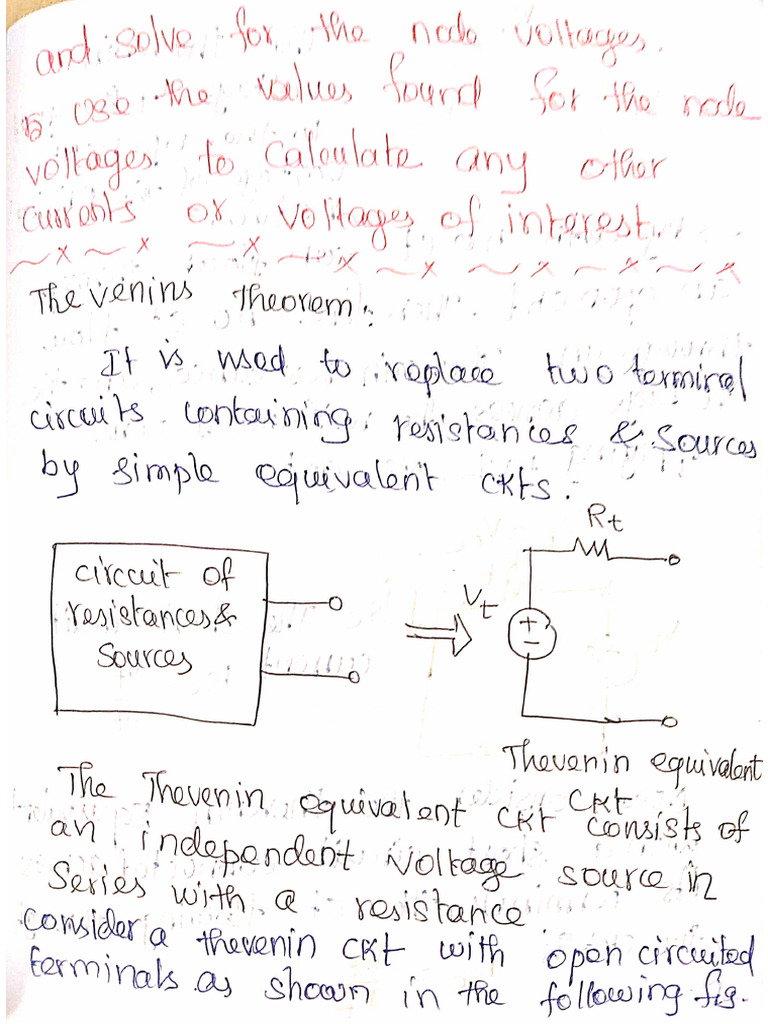 and solve for the node voltages.
5. Use the values found for the node
voltages to calculate any other
currents or voltages of interest.
~ x ~ x ~ x ~ x ~ x ~ x ~ x ~ x
Thevenins Theorem:
It is used to replace two terminal
circuits containing resistances & sources
by simple equivalent ckts.
Rt
circuit of
resistances &
sources
Vt
+
-
Thevenin equivalent
ckt
The Thevenin equivalent ckt consists of
an independent voltage source in
series with a resistance
consider a thevenin ckt with open circuited
terminals as shown in the following fig.